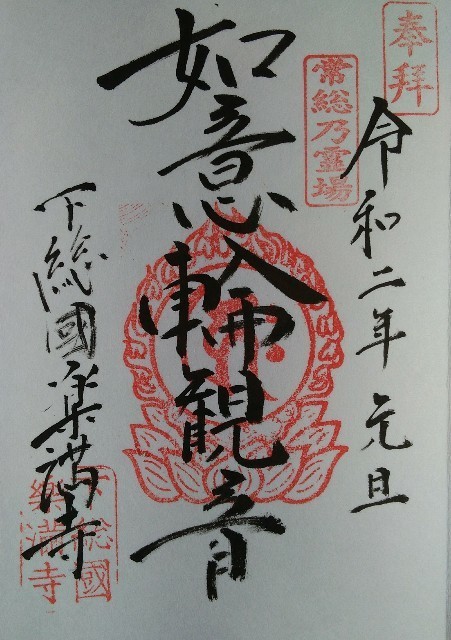 奉拝
常総乃霊場
令和二年元旦
如意輪観音
下総國楽満寺
下総國
樂満寺